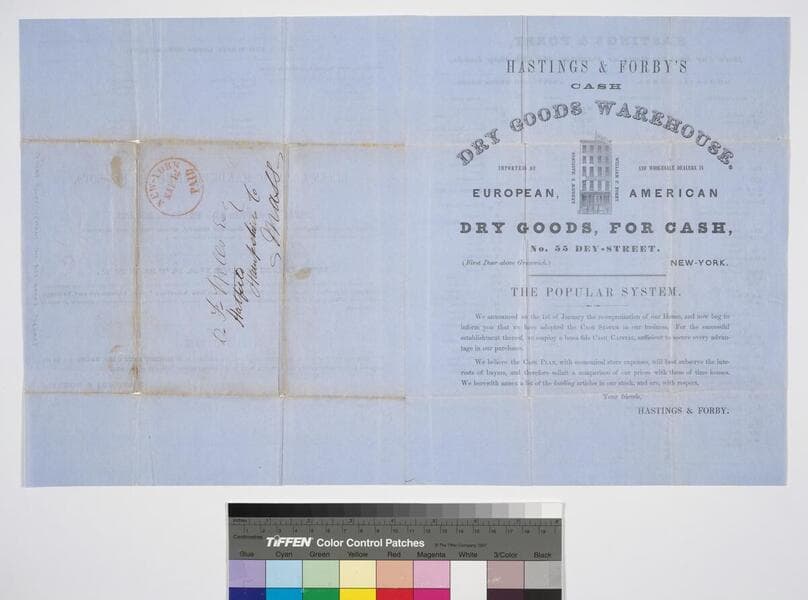 HASTINGS & FORBY'S
CASH
DRY GOODS WAREHOUSE.
IMPORTERS OF
AND WHOLESALE DEALERS IN
EUROPEAN,
AMERICAN
DRY GOODS, FOR CASH,
No. 55 DEY-STREET.
(First Door above Greenwich.)
NEW-YORK.
THE POPULAR SYSTEM.
We announced on the 1st of January the reorganization of our House, and now beg to
inform you that we have adopted the CASH SYSTEM in our business. For the successful
establishment thereof, we employ a bona fide CASH CAPITAL, sufficient to secure every advan-
tage in our purchases.
We believe the CASH PLAN, with economical store expenses, will best subserve the inte-
rests of buyers, and therefore solicit a comparison of our prices with those of time houses.
We herewith annex a list of the leading articles in our stock, and are, with respect,
Your friends,
HASTINGS & FORBY.
NEW-YORK
PAID
Hatfield
Hampshire Co
Mass
Centimetres
TIFFEN Color Control Patches
© The Tiffen Company, 2007
Blue Cyan Green Yellow Red Magenta White 3/Color Black